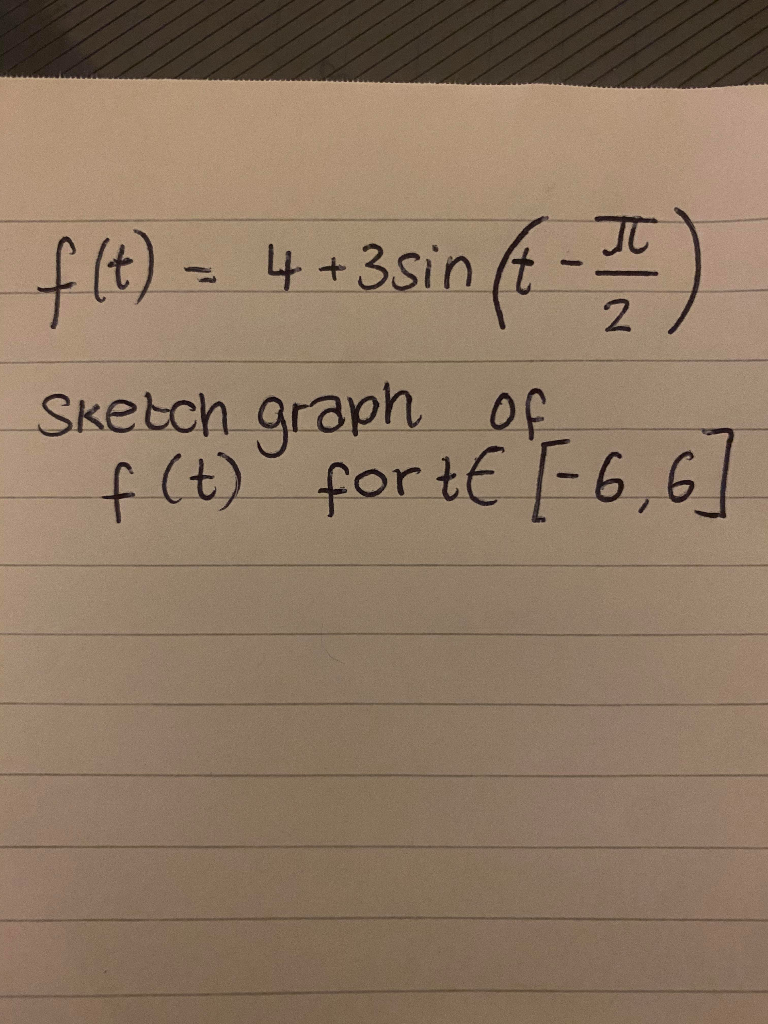 f(t) = 4 + 3sin (t - π/2)
Sketch graph of
f(t) for t∈ [-6,6]